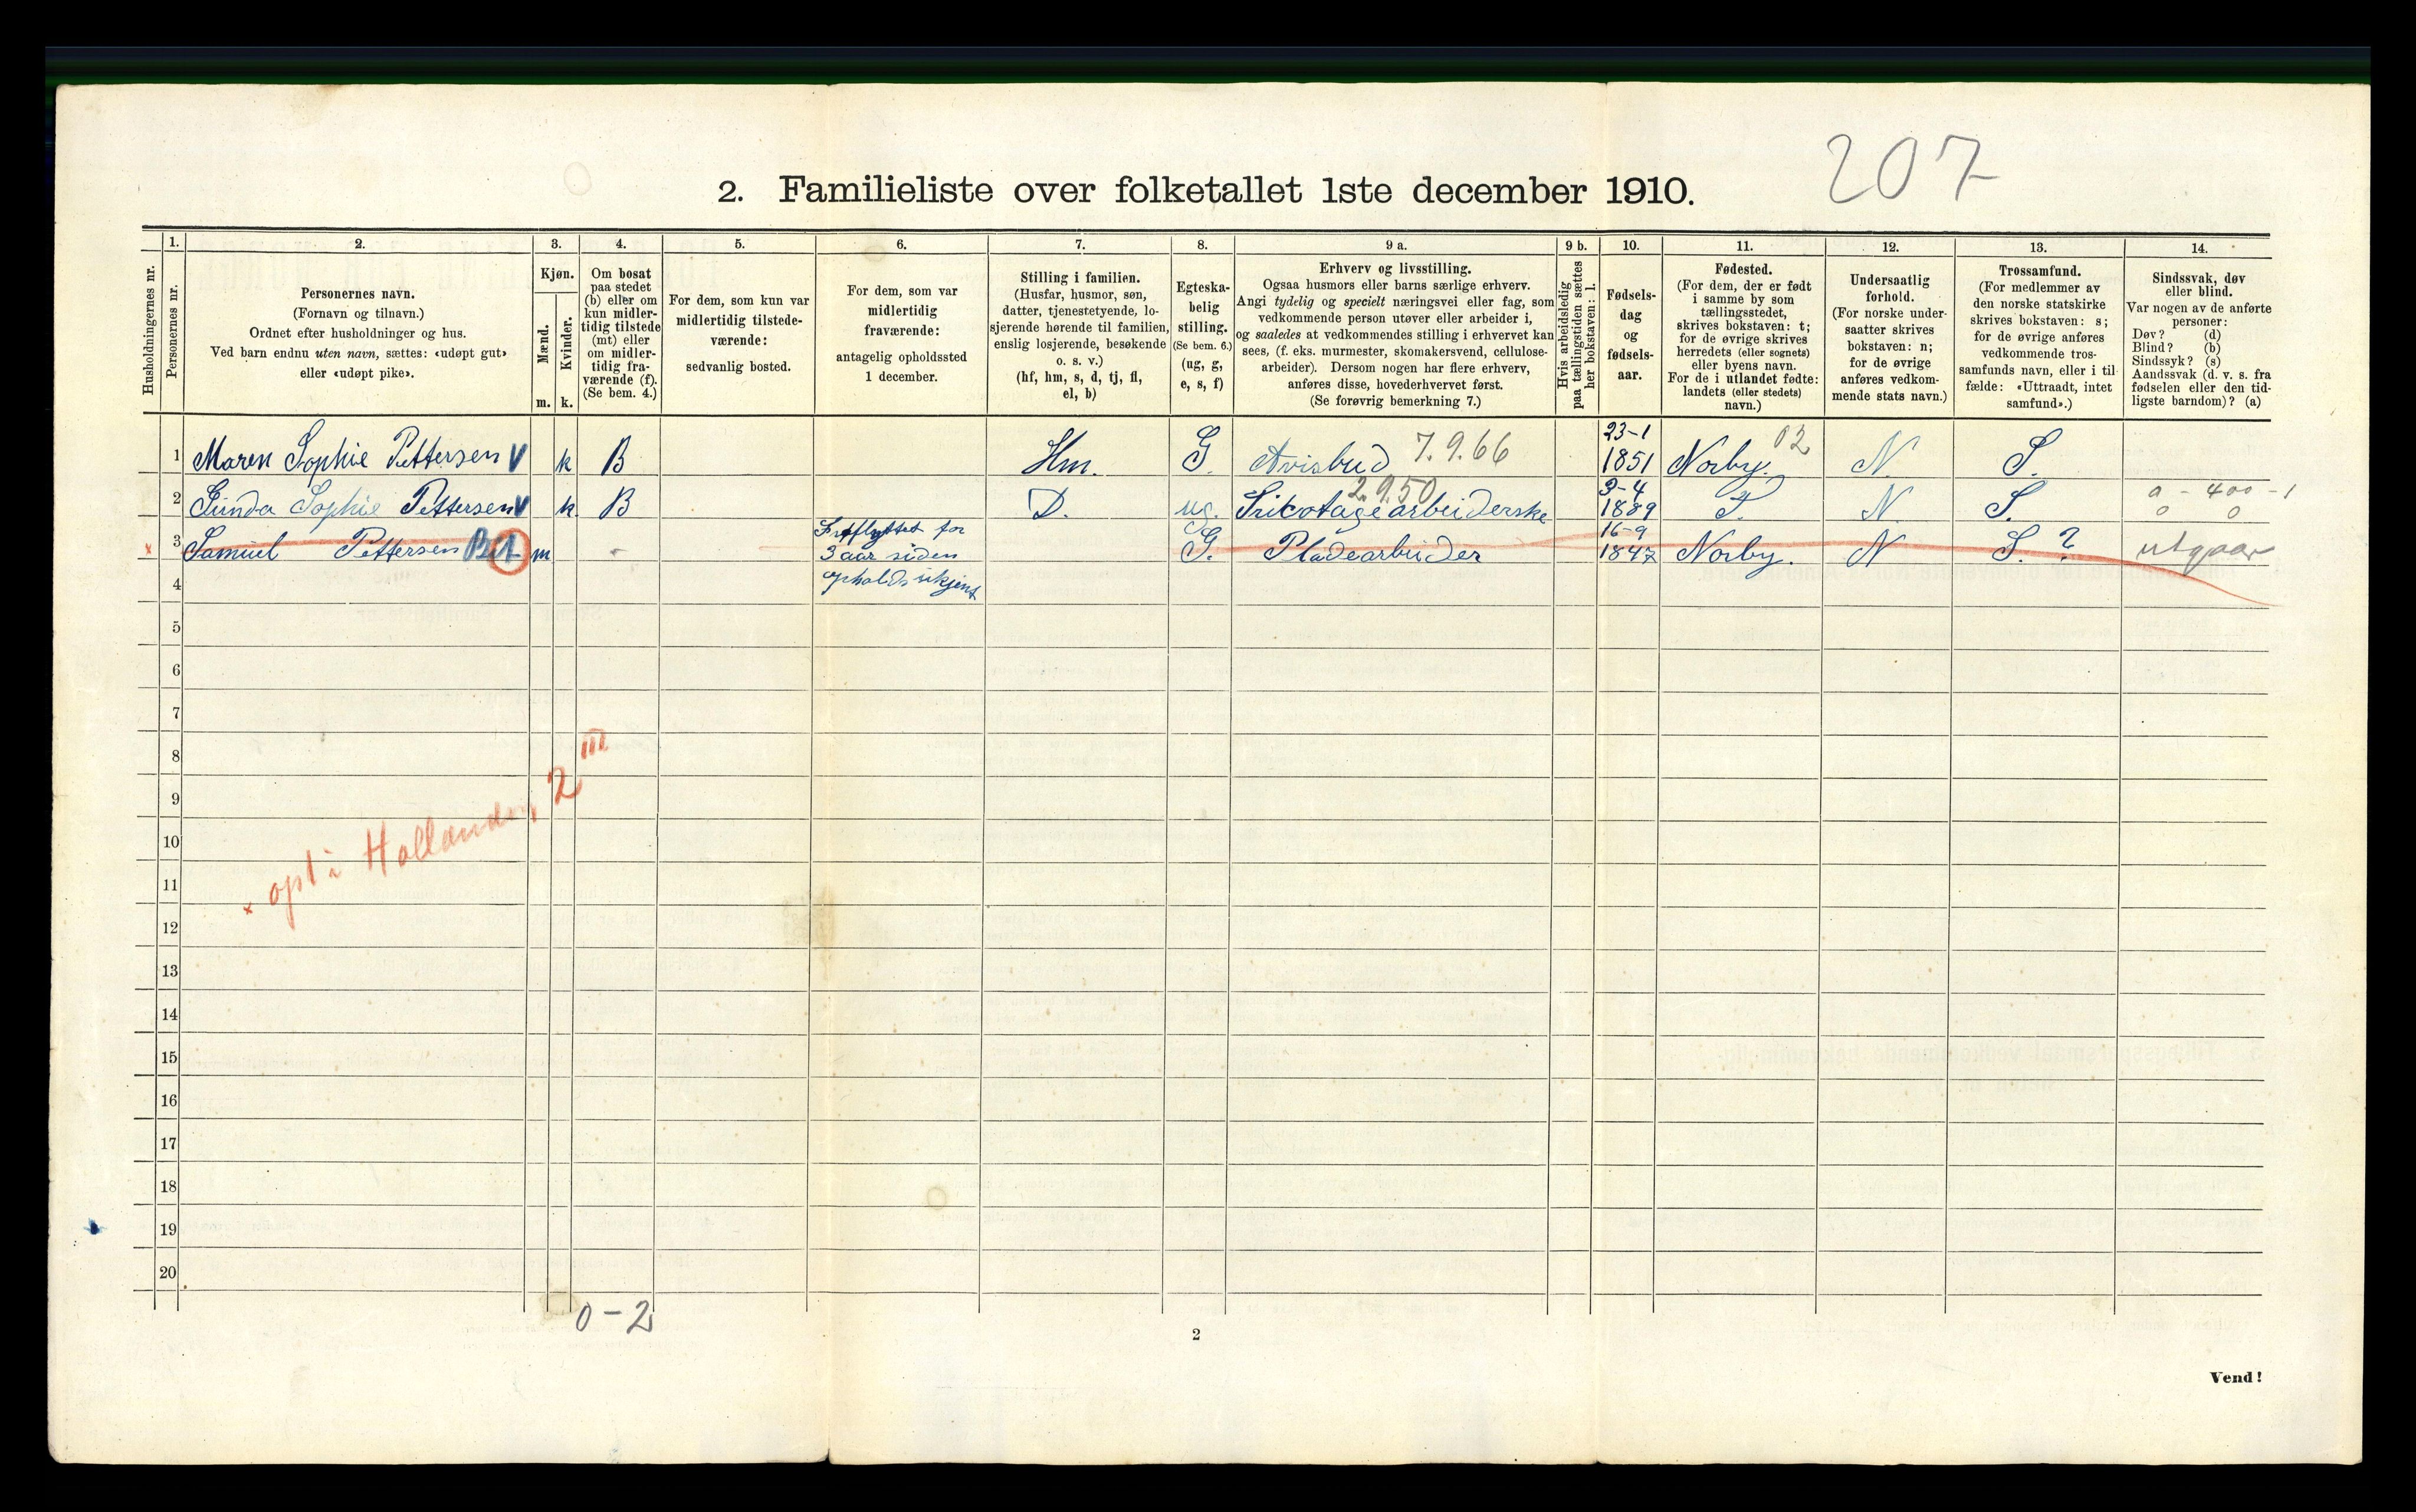 207
2. Familieliste over folketallet 1ste december 1910.
Husholdningernes nr.
1.
Personernes nr.
2.
Personernes navn.
(Fornavn og tilnavn.)
Ordnet efter husholdninger og hus.
Ved barn endnu uten navn, sættes: «udøpt gut»
eller «udøpt pike».
3.
Kjøn.
Mænd.
Kvinder.
m. k.
4.
Om bosat
paa stedet
(b) eller om
kun midler-
tidig tilstede
(mt) eller
om midler-
tidig fra-
værende (f).
(Se bem. 4.)
5.
For dem, som kun var
midlertidig tilstede-
værende:
sedvanlig bosted.
6.
For dem, som var
midlertidig
fraværende:
antagelig opholdssted
1 december.
7.
Stilling i familien.
(Husfar, husmor, søn,
datter, tjenestetyende, lo-
sjerende hørende til familien,
enslig losjerende, besøkende
o. s. v.)
(hf, hm, s, d, tj, fl,
el, b)
8.
Egteska-
belig
stilling.
(Se bem. 6.)
(ug, g,
e, s, f)
9 a.
Erhverv og livsstilling.
Ogsaa husmors eller barns særlige erhverv.
Angi tydelig og specielt næringsvei eller fag, som
vedkommende person utøver eller arbeider i,
og saaledes at vedkommendes stilling i erhvervet kan
sees, (f. eks. murmester, skomakersvend, cellulose-
arbeider). Dersom nogen har flere erhverv,
anføres disse, hovederhvervet først.
(Se forøvrig bemerkning 7.)
9 b.
Hvis arbeidsledig
paa tællingstiden sættes
her bokstaven: l.
10.
Fødsels-
dag
og
fødsels-
aar.
11.
Fødested.
(For dem, der er født
i samme by som
tællingsstedet,
skrives bokstaven: t;
for de øvrige skrives
herredets (eller sognets)
eller byens navn.
For de i utlandet fødte:
landets (eller stedets)
navn.)
12.
Undersaatlig
forhold.
(For norske under-
saatter skrives
bokstaven: n;
for de øvrige
anføres vedkom-
mende stats navn.)
13.
Trossamfund.
(For medlemmer av
den norske statskirke
skrives bokstaven: s;
for de øvrige anføres
vedkommende tros-
samfunds navn, eller i til-
fælde: «Uttraadt, intet
samfund».)
14.
Sindssvak, døv
eller blind.
Var nogen av de anførte
personer:
Døv? (d)
Blind? (b)
Sindssyk? (s)
Aandssvak (d. v. s. fra
fødselen eller den tid-
ligste barndom)? (a)
1 Maren Sophie Pettersen V k B Hm. G. Avisbud 7.9.66 23-1 1851 Norby. 02 N. S.
2 Sophie Pettersen V k. B D. ug. Tricotagearbeiderske 2.9.50 3-4 1889 T. N. S. 0 - 400 - 1
0 0
x 3 Samuel Pettersen m - Fraflyttet for G. Pladearbeider 16-9 1847 Norby. N S. ? utgaar
3 aar siden
4 opholds ukjent
5
6
7
8
9
10
11
12
13
14
15
16
17
18
19
20
x opt i Hollenderg 2 III
0 - 2
2
Vend!